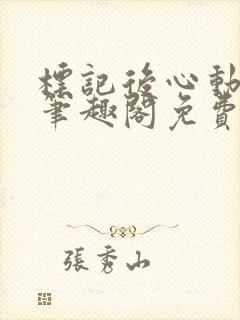 標記後心動
筆趣閣免費
張秀山